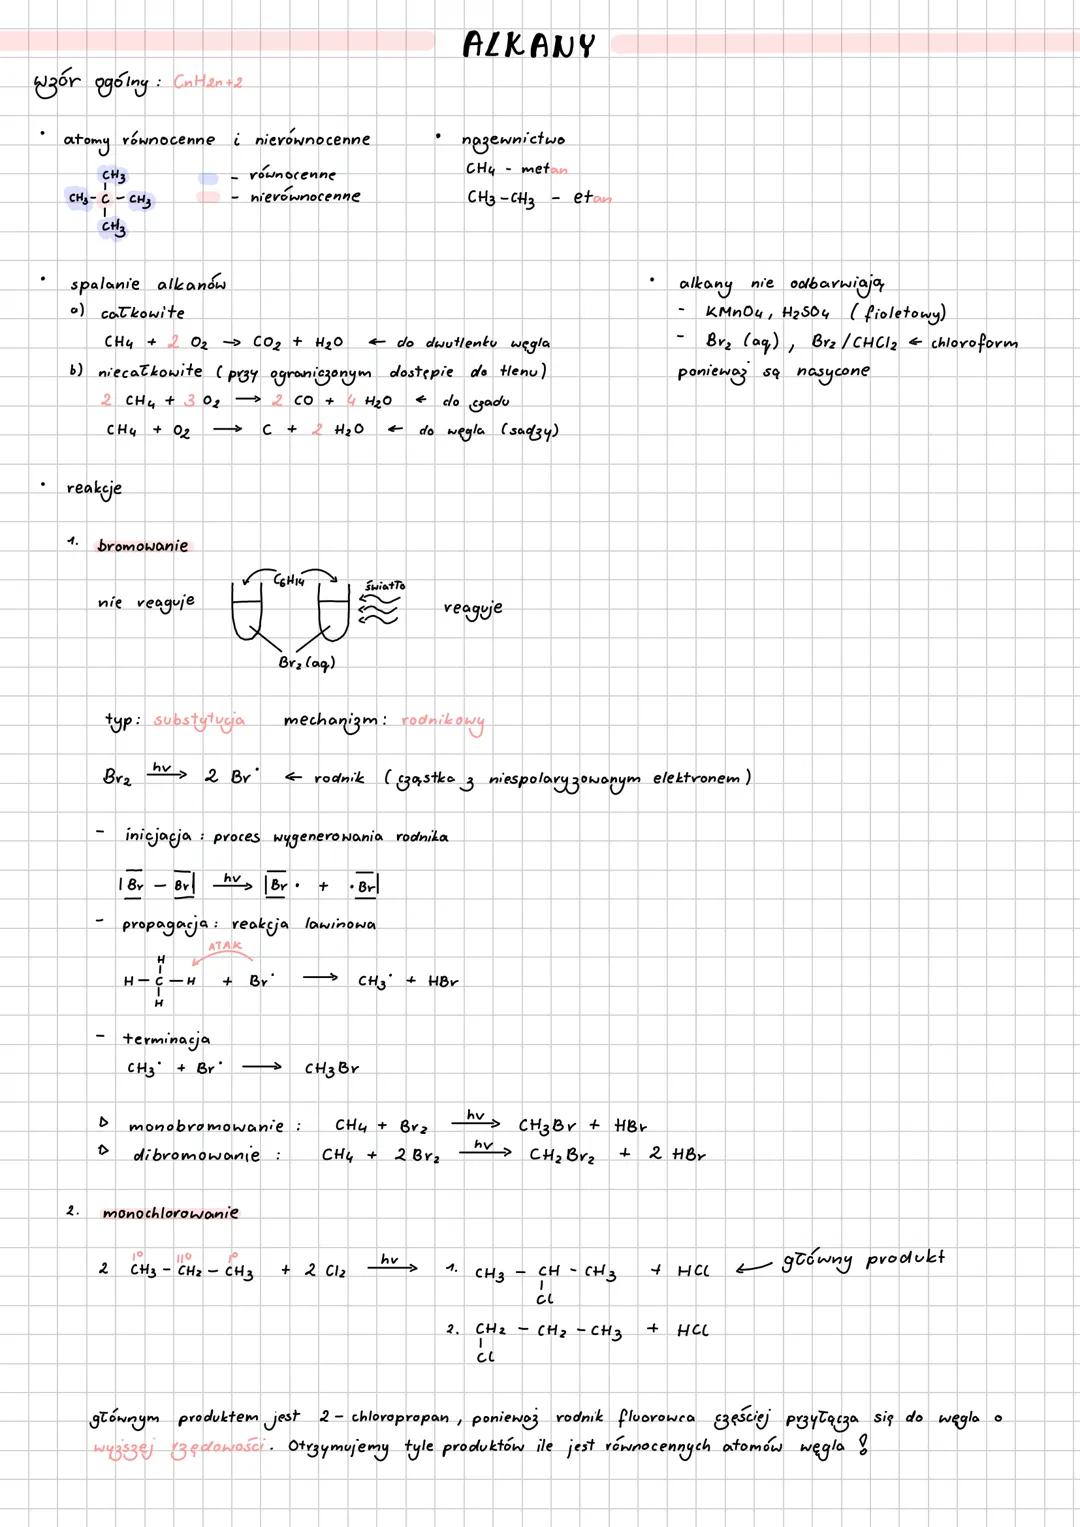 ALKANY
wzór ogólny : CnH2n+2
• atomy równocenne i nierównocenne
CH3
CH3 - C - CH3
CH3
- równocenne
- nierównocenne
• nazewnictwo
CH4 - metan
CH3 - CH3 - etan
• spalanie alkanów
a) całkowite
CH4 + 2 O2 → CO2 + H2O ← do dwutlenku węgla
b) niecałkowite (przy ograniczonym dostępie do tlenu)
2 CH4 + 3 O2 → 2 CO + 4 H2O ← do czadu
CH4 + O2 → C + 2 H2O ← do węgla (sadzy)
• alkany nie odbarwiają
- KMnO4, H2SO4 (fioletowy)
- Br2 (aq), Br2/CHCl2 ← chloroform
ponieważ są nasycone
• reakcje
1. bromowanie
nie reaguje
C6H14
światło
reaguje
Br2 (aq)
typ: substytucja mechanizm: rodnikowy
Br2 hv→ 2 Br• ← rodnik (cząstka z niespolaryzowanym elektronem)
- inicjacja : proces wygenerowania rodnika
|Br - Br| hv→ |Br • + • Br|
- propagacja : reakcja lawinowa
ATAK
H
H - C - H + Br• → CH3• + HBr
H
- terminacja
CH3• + Br• → CH3Br
▷ monobromowanie : CH4 + Br2 hv→ CH3Br + HBr
▷ dibromowanie : CH4 + 2 Br2 hv→ CH2Br2 + 2 HBr
2. monochlorowanie
I° II° I°
2 CH3 - CH2 - CH3 + 2 Cl2 hv→ 1. CH3 - CH - CH3 + HCl ← główny produkt
Cl
2. CH2 - CH2 - CH3 + HCl
Cl
głównym produktem jest 2 - chloropropan, ponieważ rodnik fluorowca częściej przyłącza się do węgla o
wyższej rzędowości. Otrzymujemy tyle produktów ile jest równocennych atomów węgla !